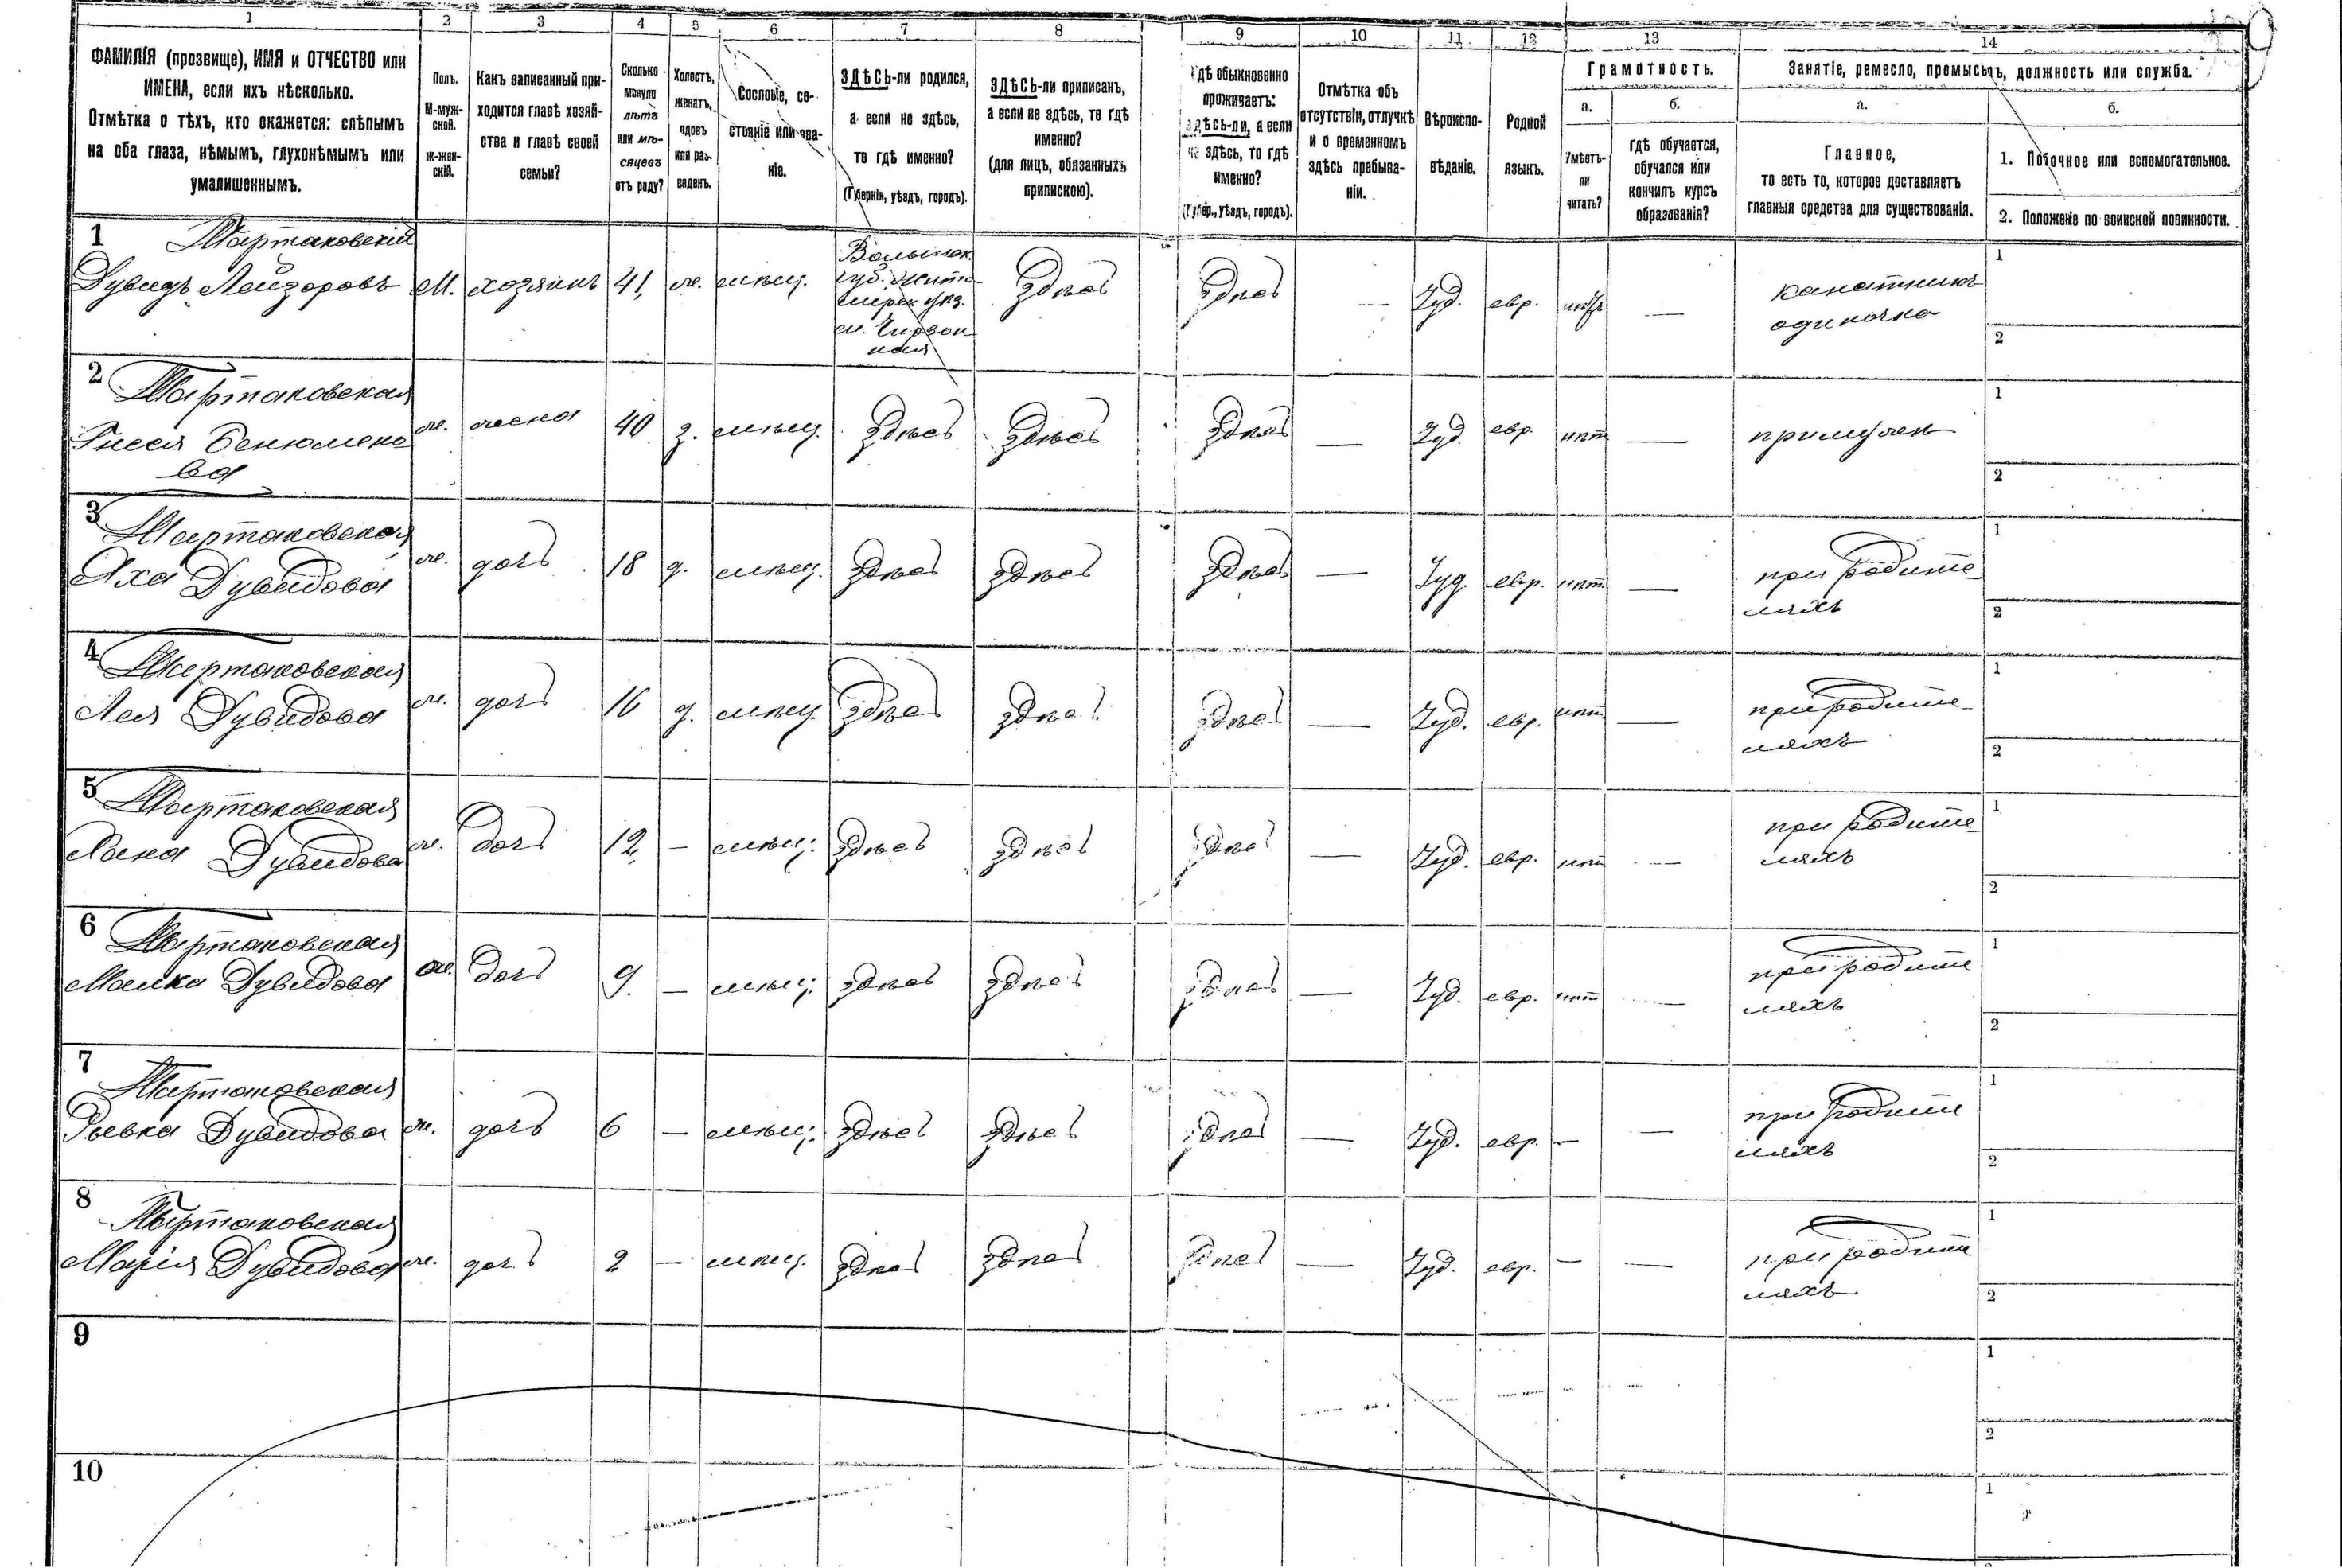 1 2 3 4 5 6 7 8 9 10 11 12 13 14
ФАМИЛІЯ (прозвище), ИМЯ и ОТЧЕСТВО или
ИМЕНА, если ихъ нѣсколько.
Отмѣтка о тѣхъ, кто окажется: слѣпымъ
на оба глаза, нѣмымъ, глухонѣмымъ или
умалишеннымъ.
Полъ.
М-муж-
ской.
ж-жен-
скій.
Какъ записанный при-
ходится главѣ хозяй-
ства и главѣ своей
семьи?
Сколько
минуло
лѣтъ
или мѣ-
сяцевъ
отъ роду?
Холостъ,
женатъ,
вдовъ
или раз-
веденъ.
Сословіе, со-
стояніе или зва-
ніе.
ЗДѢСЬ-ли родился,
а если не здѣсь,
то гдѣ именно?
(Губернія, уѣздъ, городъ).
ЗДѢСЬ-ли приписанъ,
а если не здѣсь, то гдѣ
именно?
(для лицъ, обязанныхъ
припискою).
Гдѣ обыкновенно
проживаетъ:
здѣсь-ли, а если
не здѣсь, то гдѣ
именно?
(Губер., уѣздъ, городъ).
Отмѣтка объ
отсутствіи, отлучкѣ
и о временномъ
здѣсь пребыва-
ніи.
Вѣроиспо-
вѣданіе.
Родной
языкъ.
Грамотность.
а.
Умѣетъ-
ли
читать?
б.
гдѣ обучается,
обучался или
кончилъ курсъ
образованія?
Занятіе, ремесло, промыселъ, должность или служба.
а.
Главное,
то есть то, которое доставляетъ
главныя средства для существованія.
б.
1. Побочное или вспомогательное.
2. Положеніе по воинской повинности.
1 Тартаковскій
Дувидъ Лейзоровъ М. хозяинъ 41 ж. мѣщ.
Волынск.
губ. Жито-
мирск уѣз.
м. Червон-
ная
здѣсь здѣсь — Іуд. евр. —
канатникъ
одиночка
1
2
2 Тартаковская
Гися Бенюмено
ва
ж. жена 40 з. мѣщ. здѣсь здѣсь здѣсь — Іуд. евр. нѣт —
1
2
3 Тартаковская
Яха Дувидова ж. дочь 18 д. мѣщ. здѣсь здѣсь здѣсь — Іуд. евр. нѣт. — при родите-
ляхъ
1
2
4 Тартаковская
Лея Дувидова ж. дочь 16 д. мѣщ. здѣсь здѣсь здѣсь — Іуд. евр. нѣт — при родите-
ляхъ
1
2
5 Тартаковская
Хана Дувидова ж. дочь 12 — мѣщ. здѣсь здѣсь здѣсь — Іуд. евр. нѣт — при родите-
ляхъ
1
2
6 Тартаковская
Малка Дувидова ж. дочь 9. — мѣщ. здѣсь здѣсь здѣсь — Іуд. евр. нѣт — при родите
ляхъ
1
2
7 Тартаковская
Рывка Дувидова ж. дочь 6 — мѣщ. здѣсь здѣсь здѣсь — Іуд. евр. — — при родите
ляхъ
1
2
8 Тартаковская
Марія Дувидова ж. дочь 2 — мѣщ. здѣсь здѣсь здѣсь — Іуд. евр. — — при родите
ляхъ
1
2
9
1
2
10
1